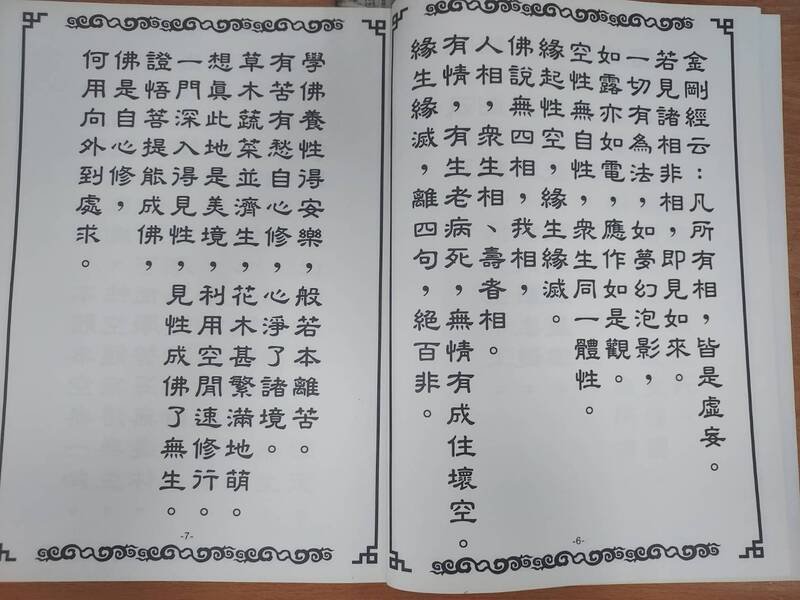 金剛經云：凡所有相，皆是虛妄。
若見諸相非相，即見如來。
一切有為法，如夢幻泡影，
如露亦如電，應作如是觀。
空性無自性，眾生同一體性。
緣起性空，緣生緣滅。
佛說無四相，我相，
人相，眾生相、壽者相。
有情，有生老病死，無情有成住壞空。
緣生緣滅，離四句，絕百非。
-6-
學佛養性得安樂，般若本離苦。
有苦有愁自心修，心淨了諸境。
草木蔬菜並濟生，花木甚繁滿地萌。
想眞此地是美境，利用空閒速修行。
一門深入得見性，見性成佛了無生。
證悟菩提能成佛，
佛是自心修，
何用向外到處求。
-7-